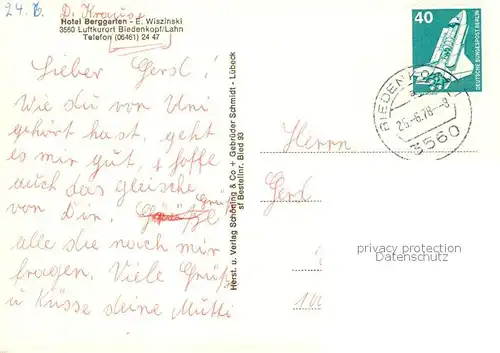 24. 6. D. Krause
Hotel Berggarten - E. Wiszinski
3560 Luftkurort Biedenkopf/Lahn
Telefon (06461) 24 47
Lieber Gerd!
Wie du von Uni
gehört hast, geht
es mir gut, + hoffe
auch das gleische
von Dir. Grüße
alle die nach mir
fragen. Viele Grüße
u Küsse deine Mutti
Herst. u. Verlag Schöning & Co + Gebrüder Schmidt - Lübeck
sf Bestellnr. Bied 93
40
DEUTSCHE BUNDESPOST BERLIN
BIEDENKOPF
25.-6.78.-8
3560
Herrn
Gerd
privacy protection
Datenschutz